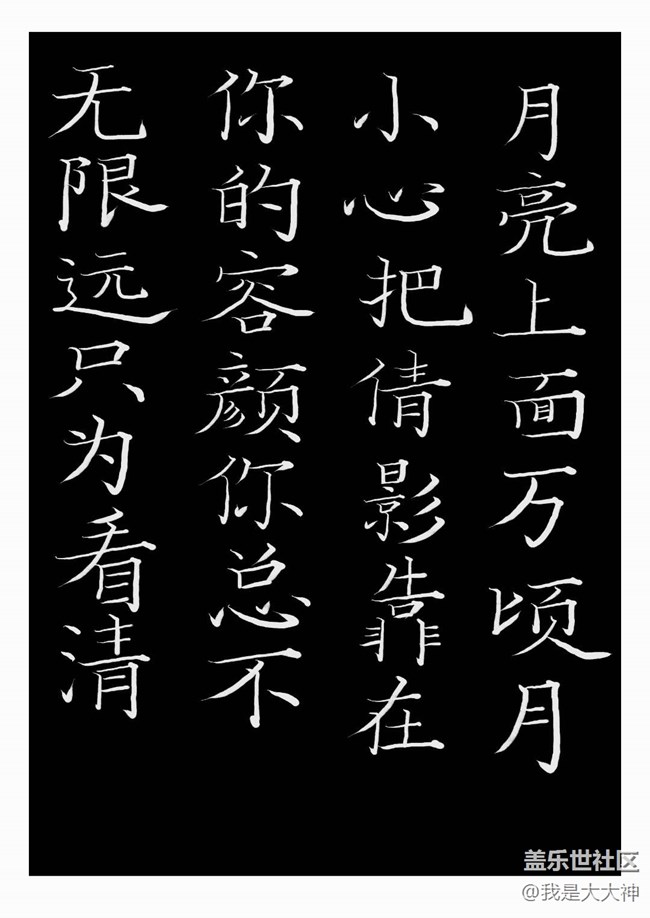 月亮上面万顷月
小心把倩影靠在
你的容颜你总不
无限远只为看清
盖乐世社区
@我是大大神